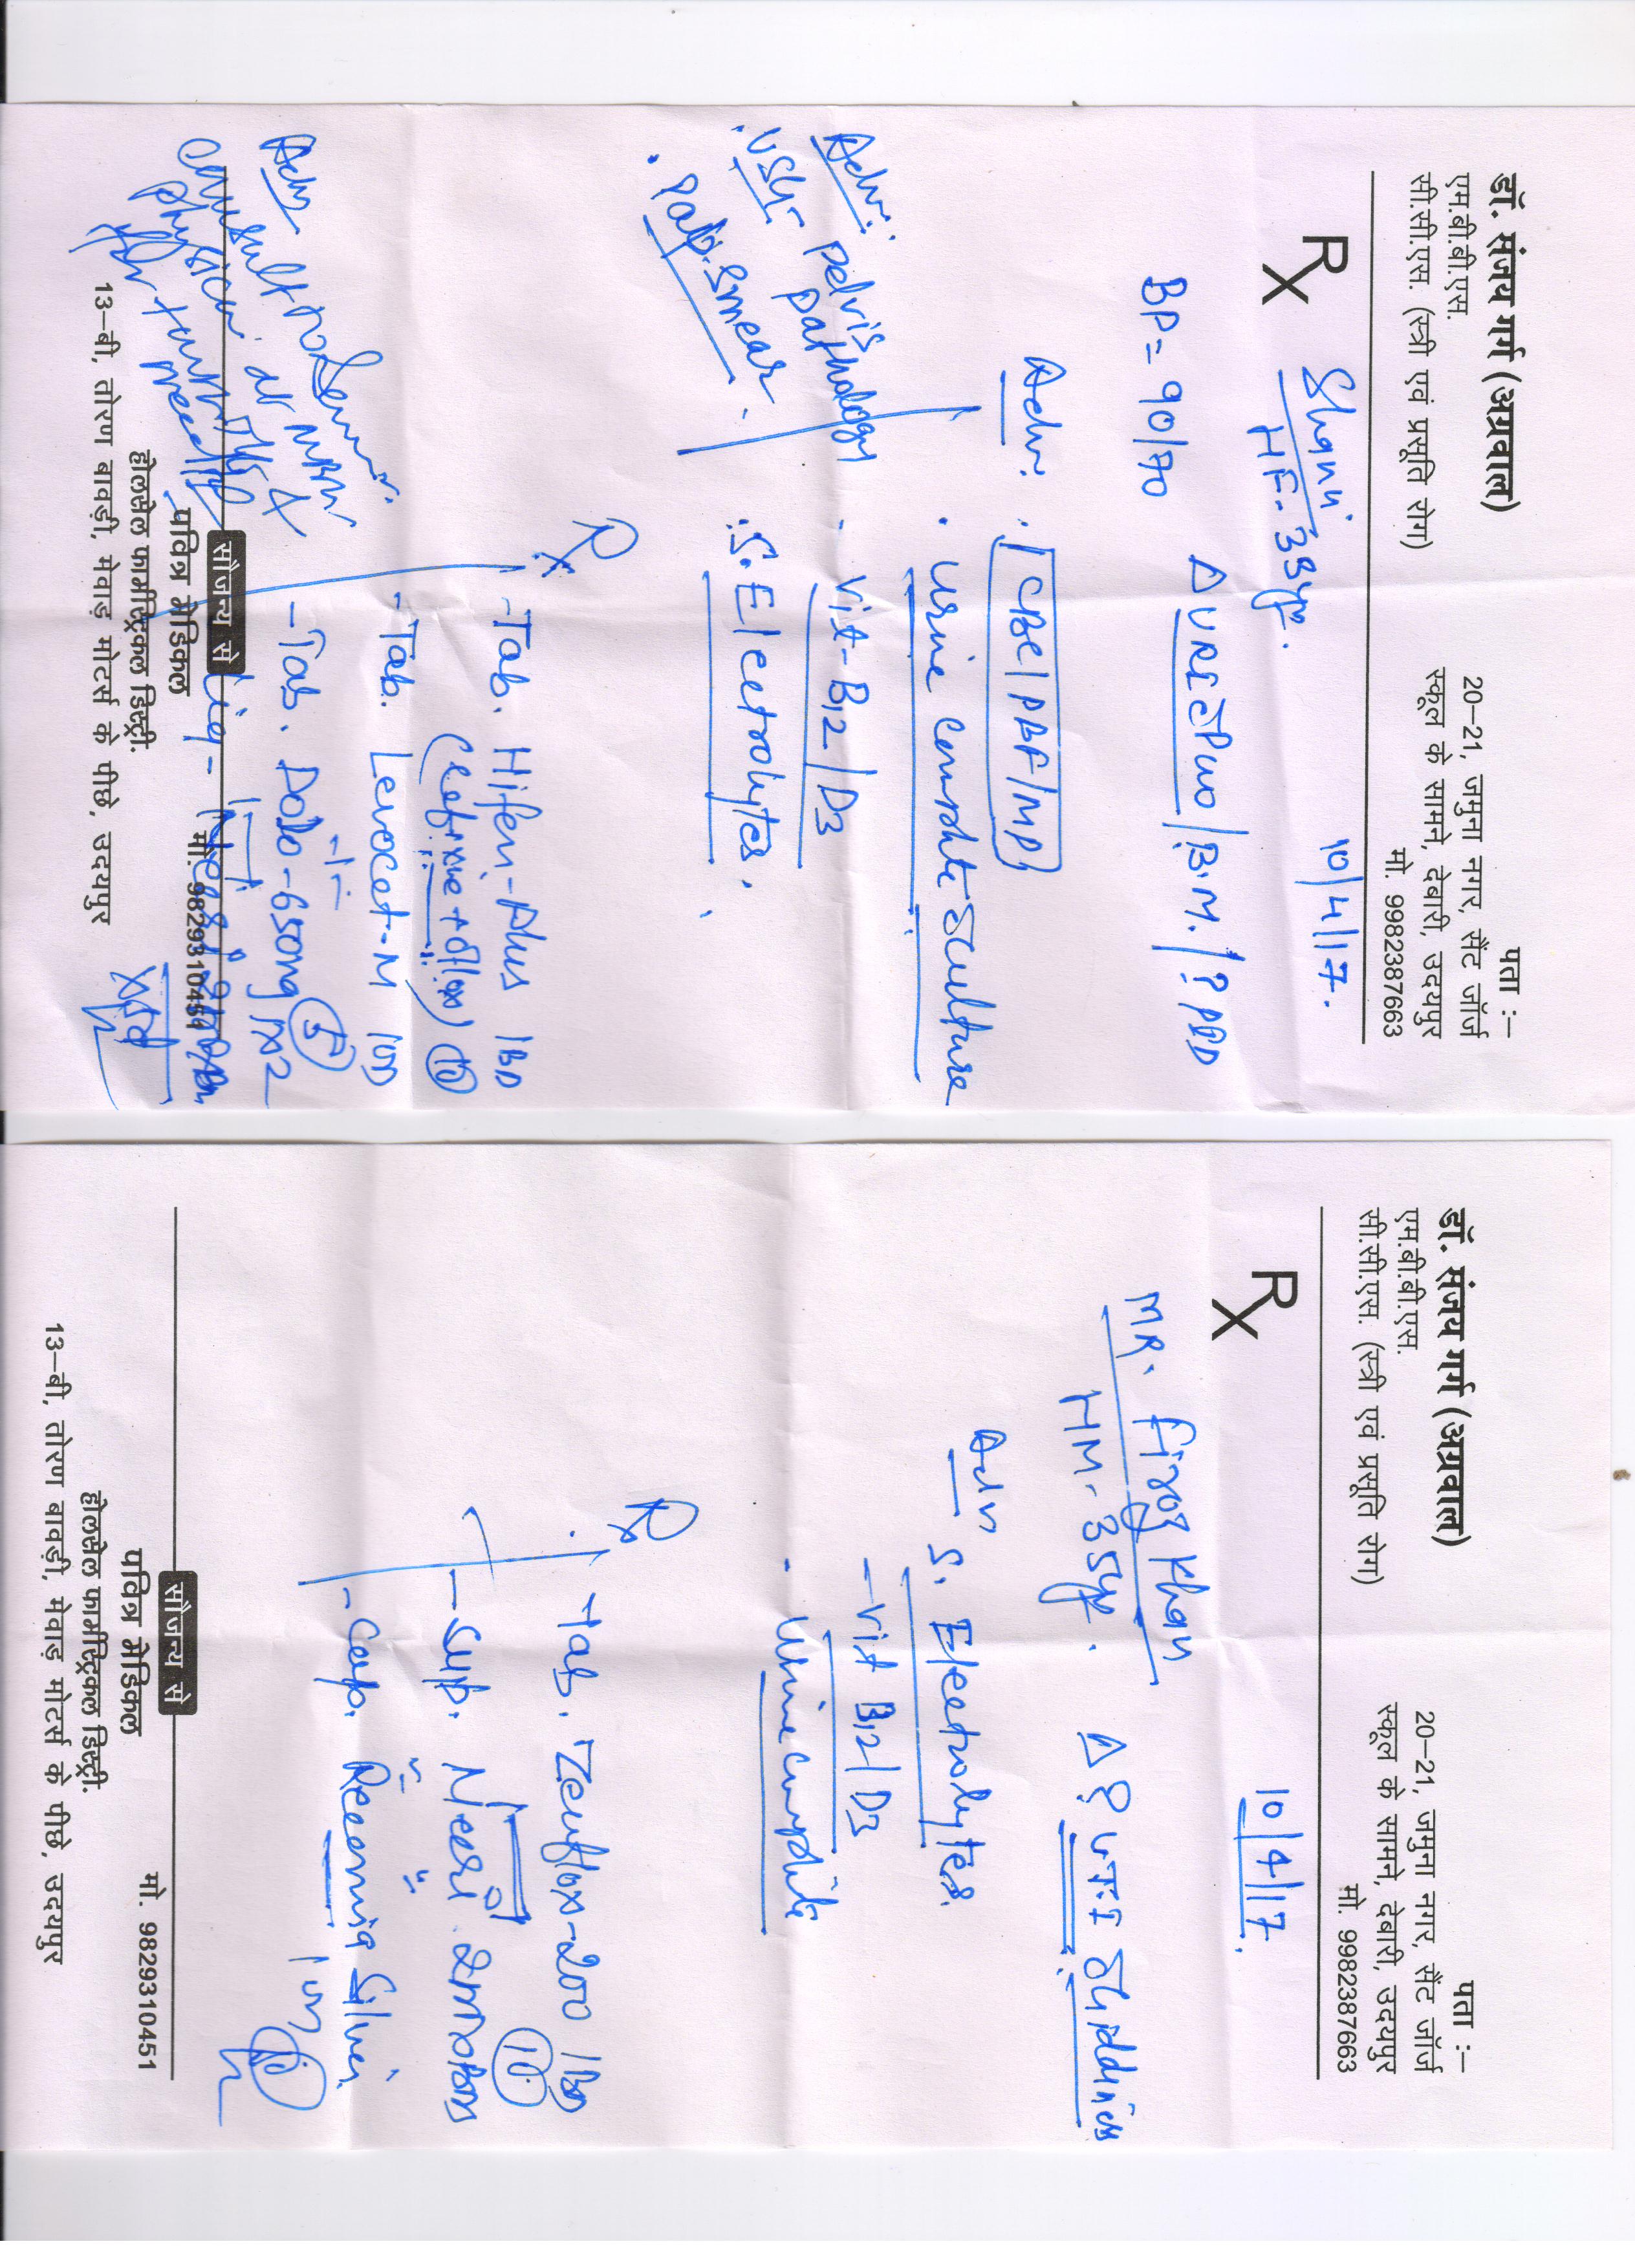 डॉ. संजय गर्ग (अग्रवाल)
एम.बी.बी.एस.
सी.सी.एस. (स्त्री एवं प्रसूति रोग)
पता :–
20–21, जमुना नगर, सैंट जॉर्ज
स्कूल के सामने, देबारी, उदयपुर
मो. 9982387663
Rx
10/4/17.
HF- 33yr.
BP= 90/70
Adv.
CBC/PBF/MP
Urine complete & culture
Vit-B12/D3
S. Electrolytes.
Adv.
USG- pelvis
pathology
Pap. Smear.
Rx
-Tab. Hifen-plus 1BD
(Cefixime + oflox) 10
-Tab. Levocet-M 1OD
-Tab. Dolo-650mg 1x2
5
Liq-
Adv
consult to
physician at
for further
सौजन्य से
पवित्र मेडिकल
मो. 9829310451
होलसेल फार्मास्ट्रिकल डिस्ट्री.
13–बी, तोरण बावड़ी, मेवाड़ मोटर्स के पीछे, उदयपुर
डॉ. संजय गर्ग (अग्रवाल)
एम.बी.बी.एस.
सी.सी.एस. (स्त्री एवं प्रसूति रोग)
पता :–
20–21, जमुना नगर, सैंट जॉर्ज
स्कूल के सामने, देबारी, उदयपुर
मो. 9982387663
Rx
10/4/17.
MR. Firoz Khan
HM- 35yr.
Δ ? UTI & Giddiness
Adv
S. Electrolytes.
-Vit B12/D3
- Urine complete
Rx
Tab. Zenflox-200 1BD
10
-Syp. Neeri 2
-Cap. Becomin Silver
10
सौजन्य से
पवित्र मेडिकल
मो. 9829310451
होलसेल फार्मास्ट्रिकल डिस्ट्री.
13–बी, तोरण बावड़ी, मेवाड़ मोटर्स के पीछे, उदयपुर